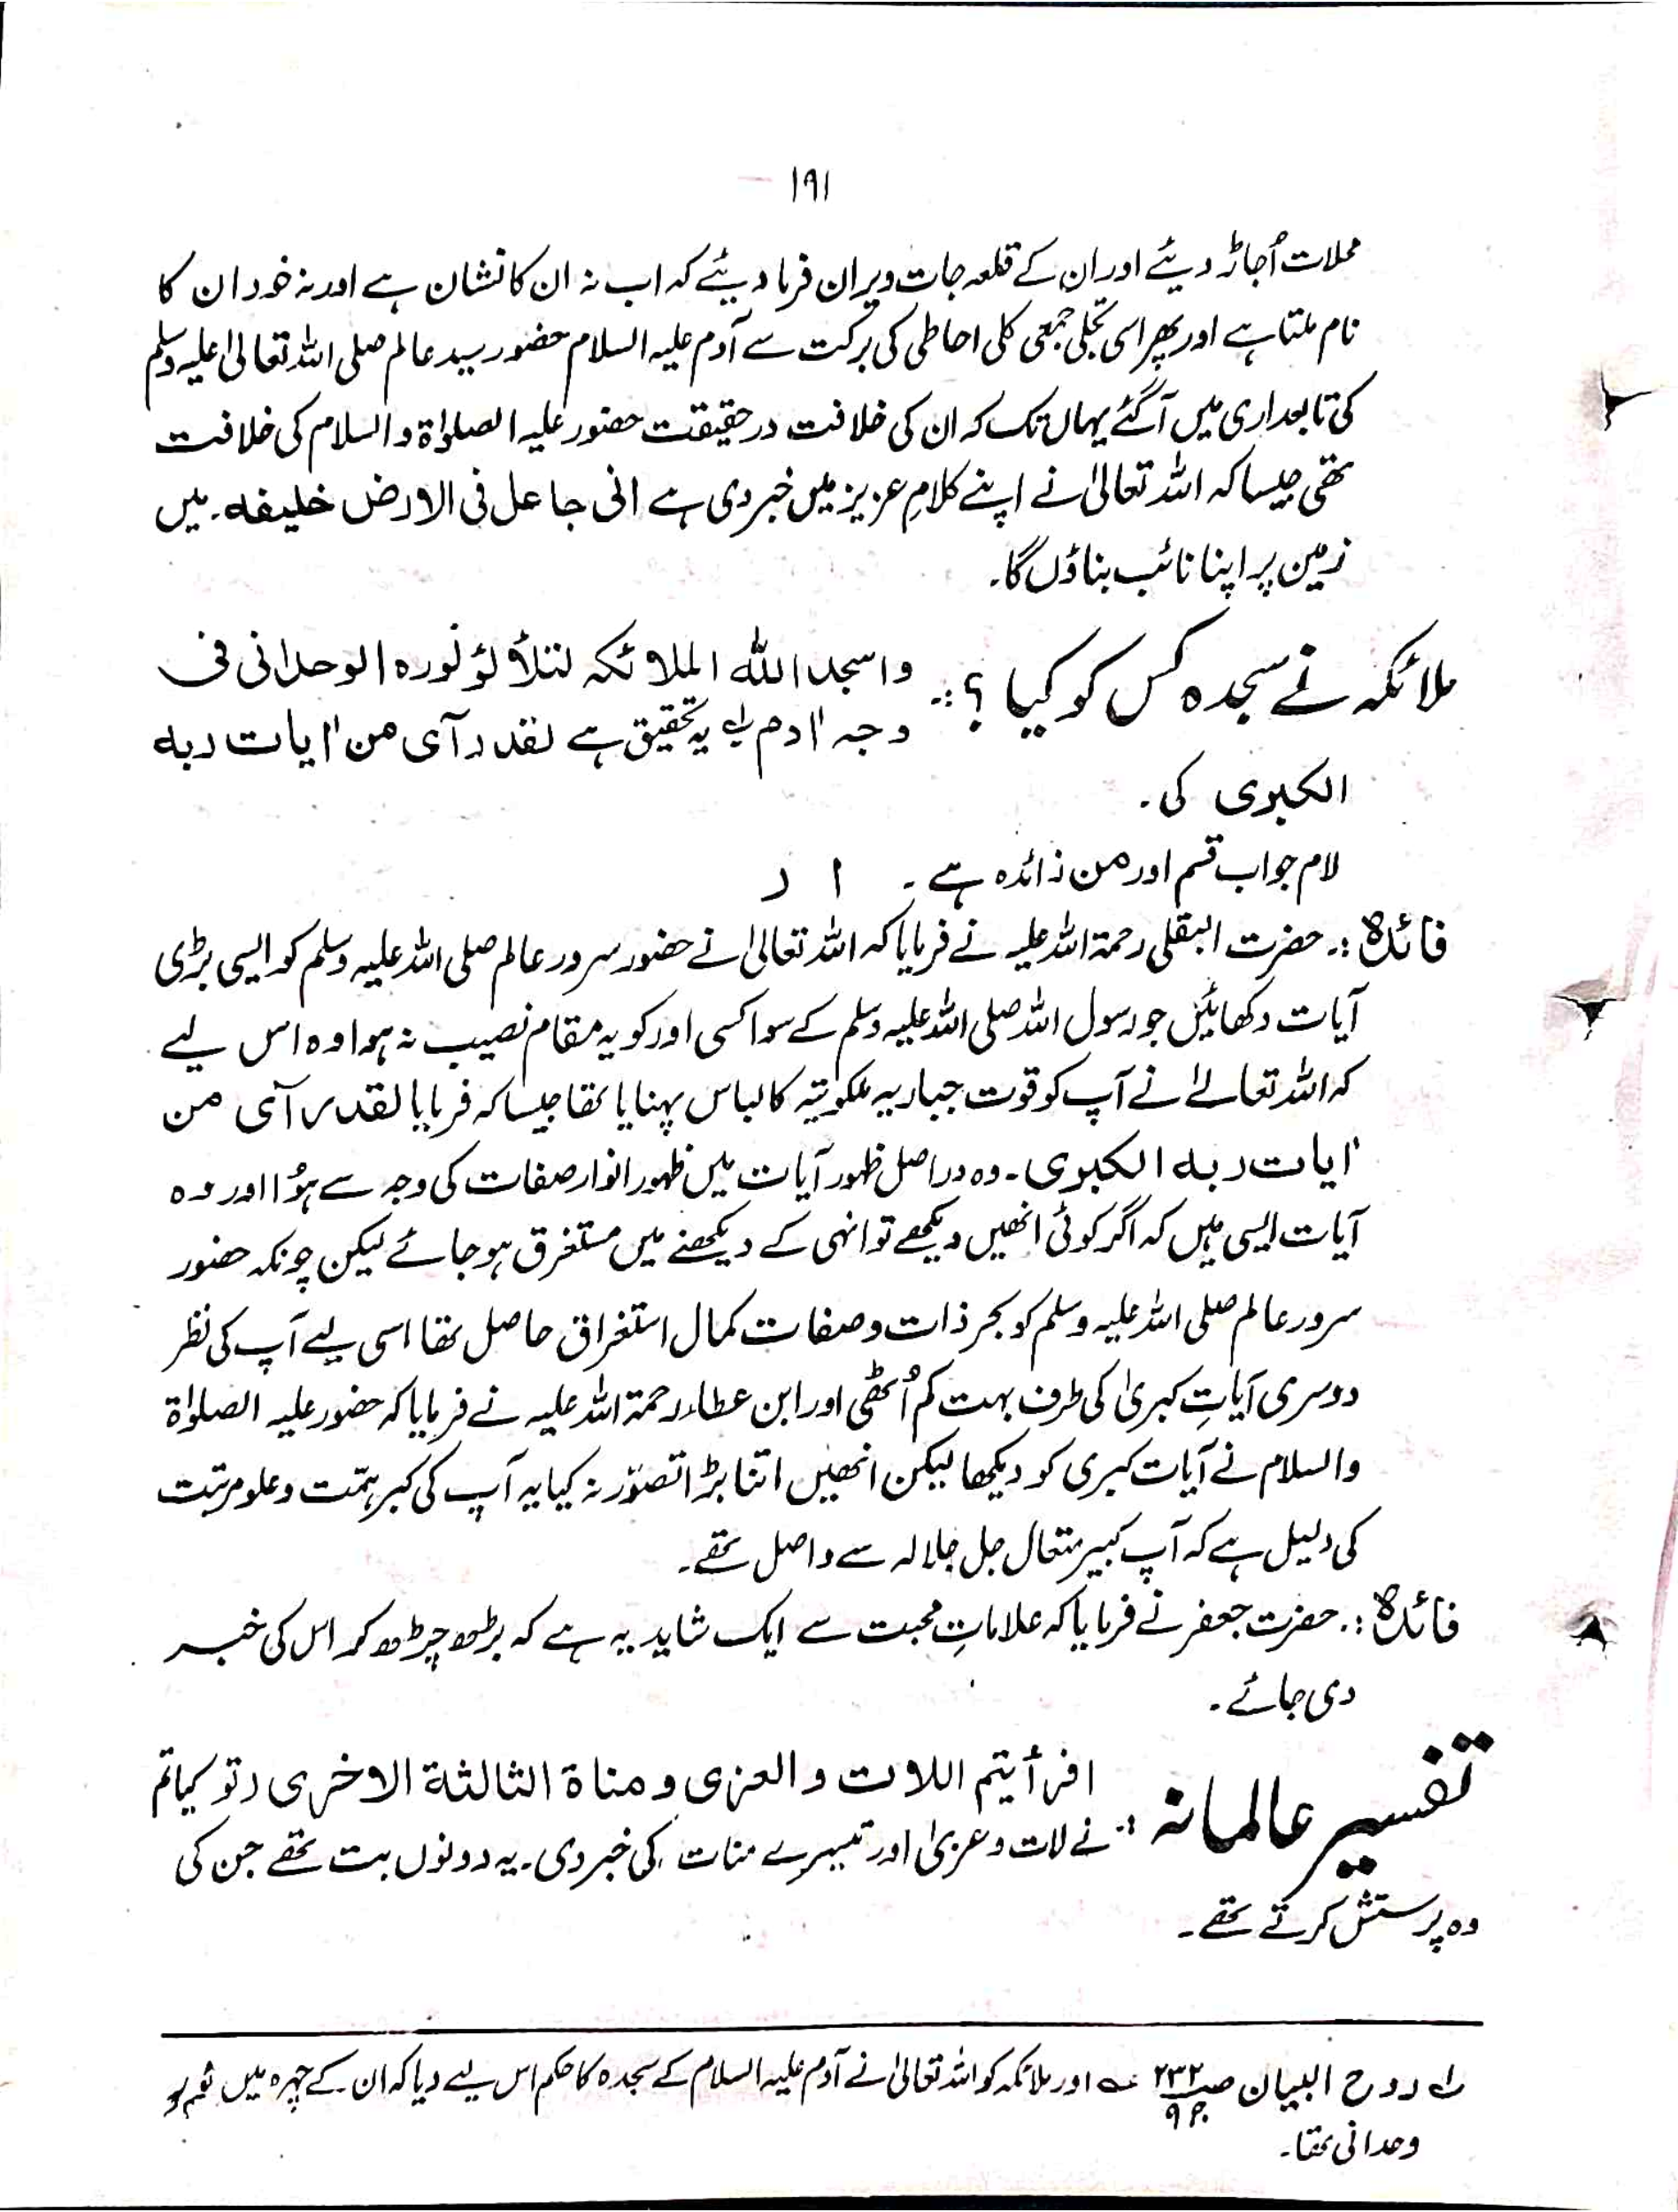 ۱۹۱
محلات اُجاڑ دیئے اور ان کے قلعہ جات ویران فرما دیئے کہ اب نہ ان کا نشان ہے اور نہ خود ان کا
نام ملتا ہے اور پھر اسی تجلی جمعی کلی احاطی کی برکت سے آدم علیہ السلام حضور سید عالم صلی اللہ تعالیٰ علیہ وسلم
کی تابعداری میں آگئے یہاں تک کہ ان کی خلافت درحقیقت حضور علیہ الصلوٰۃ والسلام کی خلافت
تھی جیسا کہ اللہ تعالیٰ نے اپنے کلامِ عزیز میں خبر دی ہے انی جاعل فی الارض خلیفہ۔ میں
زمین پر اپنا نائب بناؤں گا۔
ملائکہ نے سجدہ کس کو کیا ؟ :۔ واسجد اللہ الملائکہ لتلأ لؤ نورہ الوحدانی فی
وجہ اٰدم لہ یہ تحقیق ہے لقد رآی من اٰیات ربه
الکبری کی۔
لام جواب قسم اور من زائدہ ہے۔ ا ر
فائدہ :۔ حضرت البقلی رحمۃ اللہ علیہ نے فرمایا کہ اللہ تعالیٰ نے حضور سرور عالم صلی اللہ علیہ وسلم کو ایسی بڑی
آیات دکھائیں جو رسول اللہ صلی اللہ علیہ وسلم کے سوا کسی اور کو یہ مقام نصیب نہ ہوا وہ اس لیے
کہ اللہ تعالےٰ نے آپ کو قوت جباریہ ملکوتیہ کا لباس پہنایا تھا جیسا کہ فرمایا لقد رآی من
اٰیات ربه الکبری۔ وہ دراصل ظہور آیات میں ظہور انوار صفات کی وجہ سے ہُوا اور وہ
آیات ایسی ہیں کہ اگر کوئی انھیں دیکھے تو انہی کے دیکھنے میں مستغرق ہو جائے لیکن چونکہ حضور
سرور عالم صلی اللہ علیہ وسلم کو بحر ذات و صفات کمال استغراق حاصل تھا اسی لیے آپ کی نظر
دوسری آیاتِ کبریٰ کی طرف بہت کم اُٹھی اور ابن عطاء رحمۃ اللہ علیہ نے فرمایا کہ حضور علیہ الصلوٰۃ
والسلام نے آیات کبری کو دیکھا لیکن انھیں اتنا بڑا تصوّر نہ کیا یہ آپ کی کبر ہمّت و علو مرتبت
کی دلیل ہے کہ آپ کبیر متعال جل جلالہ سے واصل تھے۔
فائدہ :۔ حضرت جعفر نے فرمایا کہ علاماتِ محبت سے ایک شاید یہ ہے کہ بڑھ چڑھ کر اس کی خبر
دی جائے۔
تفسیر عالمانہ :۔ افرأیتم اللات والعزی ومناۃ الثالثة الاخری (تو کیا تم
نے لات و عزیٰ اور تیسرے منات کی خبر دی۔ یہ دونوں بت تھے جن کی
وہ پرستش کرتے تھے۔
لہ روح البیان صـ ۲۳۲ ج ۹ ـہ اور ملائکہ کو اللہ تعالیٰ نے آدم علیہ السلام کے سجدہ کا حکم اس لیے دیا کہ ان کے چہرہ میں
وحدانی تھا۔